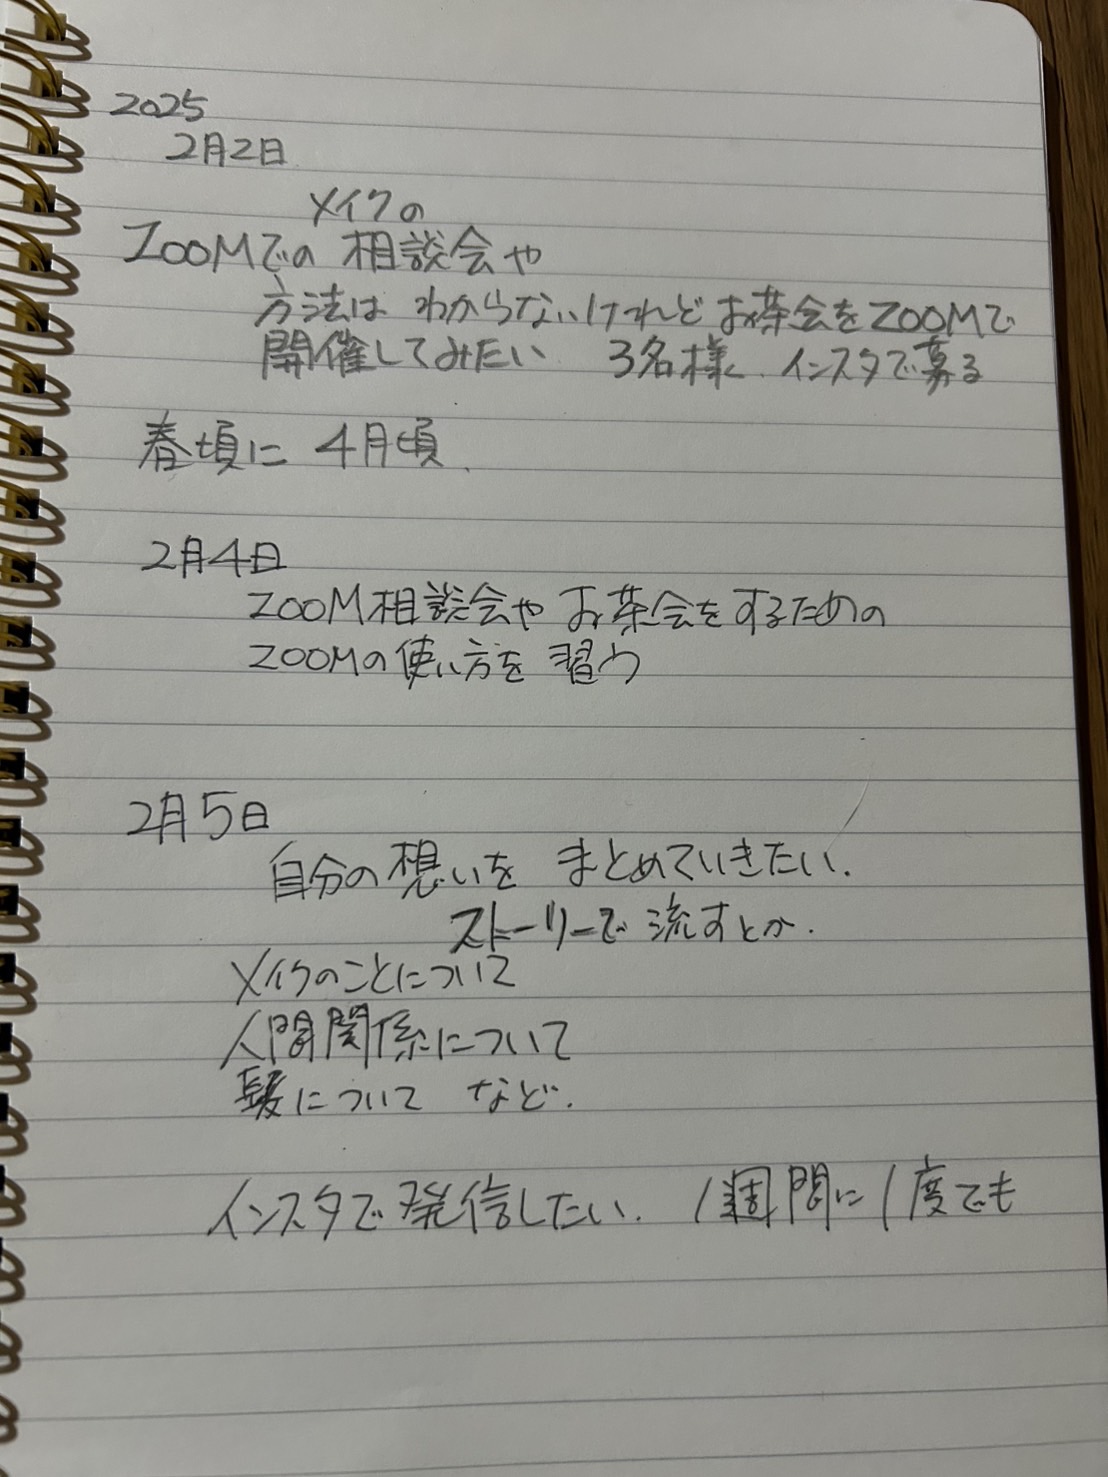 2025
2月2日
メイクの
ZOOMでの 相談会や
方法は わからないけれど お茶会をZOOMで
開催してみたい 3名様 インスタで募る
春頃に 4月頃
2月4日
ZOOM相談会や お茶会をするための
ZOOMの使い方を 習う
2月5日
自分の想いを まとめていきたい.
ストーリーで 流すとか.
メイクのことについて
人間関係について
髪について など.
インスタで発信したい. 1週間に1度でも